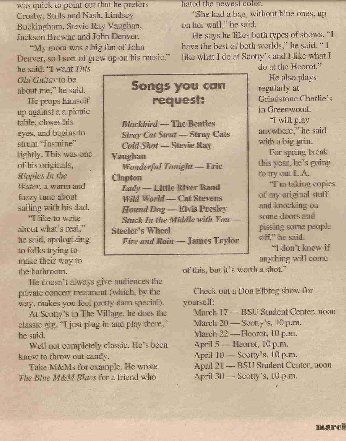 was quick to point out that he prefers
Crosby, Stills and Nash, Lindsey
Buckingham, Stevie Ray Vaughan,
Jackson Browne and John Denver.
"My mom was a big fan of John
Denver, so I sort of grew up on his music,"
he said. "I want This
Old Guitar to be
about me," he said.
He props himself
up against a picnic
table, closes his
eyes, and begins to
strum "Jasmine"
lightly. This was one
of his originals,
Hippies In the
Water, a warm and
fuzzy tune about
sailing with his dad.
"I like to write
about what's real,"
he said, apologizing
to folks trying to
make their way to
the bathroom.
He doesn't always give audiences the
private concert treatment (which, by the
way, makes you feel pretty darn special).
At Scotty's in The Village, he does the
classic gig. "I just plug in and play there,"
he said.
Well not completely classic. He's been
know to throw out candy.
Take M&Ms for example. He wrote
The Blue M&M Blues for a friend who
Songs you can
request:
Blackbird — The Beatles
Stray Cat Strut — Stray Cats
Cold Shot — Stevie Ray
Vaughan
Wonderful Tonight — Eric
Clapton
Lady — Little River Band
Wild World — Cat Stevens
Hound Dog — Elvis Presley
Stuck In the Middle with You —
Steeler's Wheel
Fire and Rain — James Taylor
hated the newest color.
"She had a bag, without blue ones, up
on her wall," he said.
He says he likes both types of shows. "I
have the best of both worlds," he said. "I
like what I do at Scotty's and I like what I
do at the Heorot."
He also plays
regularly at
Grindstone Charlie's
in Greenwood.
"I will play
anywhere," he said
with a big grin.
For spring break
this year, he's going
to try out L.A.
"I'm taking copies
of my original stuff
and knocking on
some doors and
pissing some people
off," he said.
"I don't know if
anything will come
of this, but it's worth a shot."
Check out a Don Elbing show for
yourself:
March 17 — BSU Student Center, noon
March 20 — Scotty's, 10 p.m.
March 22 — Heorot, 10 p.m.
April 5 — Heorot, 10 p.m.
April 10 — Scotty's, 10 p.m.
April 21 — BSU Student Center, noon
April 30 — Scotty's, 10 p.m.
march